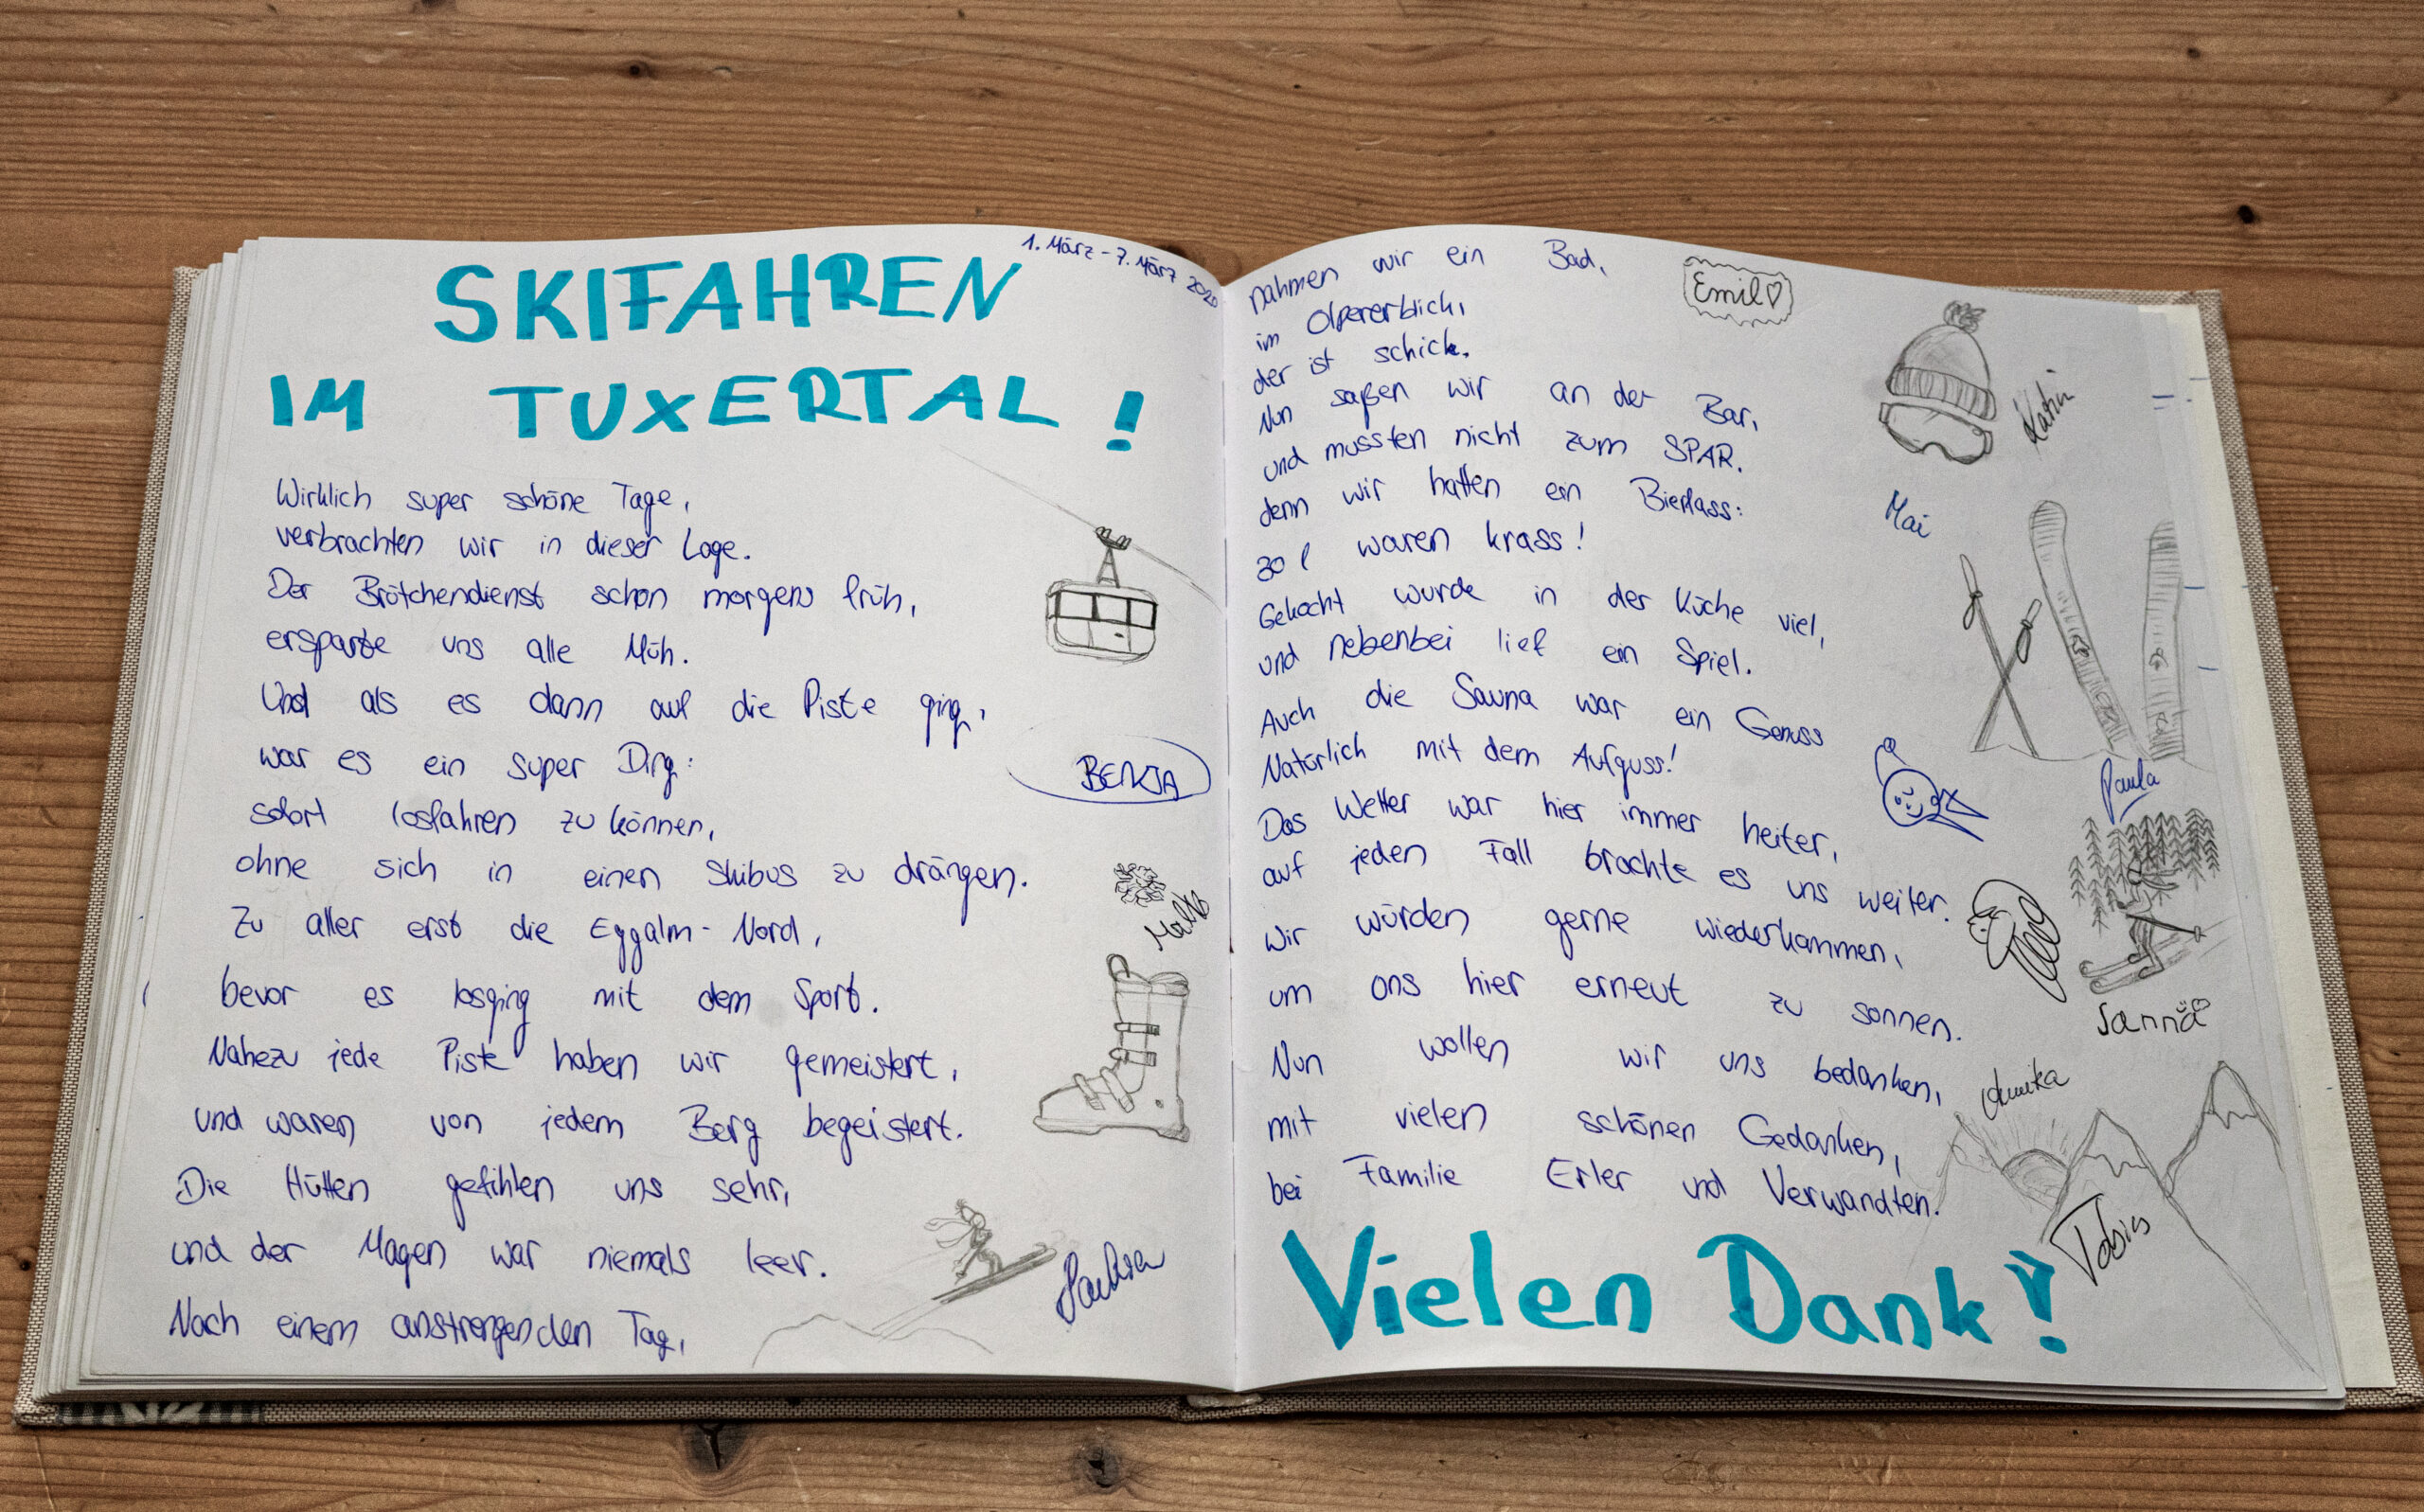 1. März - 7. März 2020
SKIFAHREN
IM TUXERTAL!
Wirklich super schöne Tage,
verbrachten wir in dieser Lage.
Der Brötchendienst schon morgens früh,
ersparte uns alle Müh.
Und als es dann auf die Piste ging,
war es ein super Ding:
sofort losfahren zu können,
ohne sich in einen Skibus zu drängen.
Zu aller erst die Eggalm-Nord,
bevor es losging mit dem Sport.
Nahezu jede Piste haben wir gemeistert,
und waren von jedem Berg begeistert.
Die Hütten gefihlen uns sehr,
und der Magen war niemals leer.
Nach einem anstrengenden Tag,
BENJA
Malte
nahmen wir ein Bad,
im Olpererblick,
der ist schick.
Nun saßen wir an der Bar,
und mussten nicht zum SPAR.
denn wir hatten ein Bierfass:
30 l waren krass!
Gekocht wurde in der Küche viel,
und nebenbei lief ein Spiel.
Auch die Sauna war ein Genuss
Natürlich mit dem Aufguss!
Das Wetter war hier immer heiter,
auf jeden Fall brachte es uns weiter.
Wir würden gerne wiederkommen,
um uns hier erneut zu sonnen.
Nun wollen wir uns bedanken,
mit vielen schönen Gedanken,
bei Familie Erler und Verwandten.
Vielen Dank!
Emil♡
Katrin
Mai
Paula
Sanna
Annika
Tobias